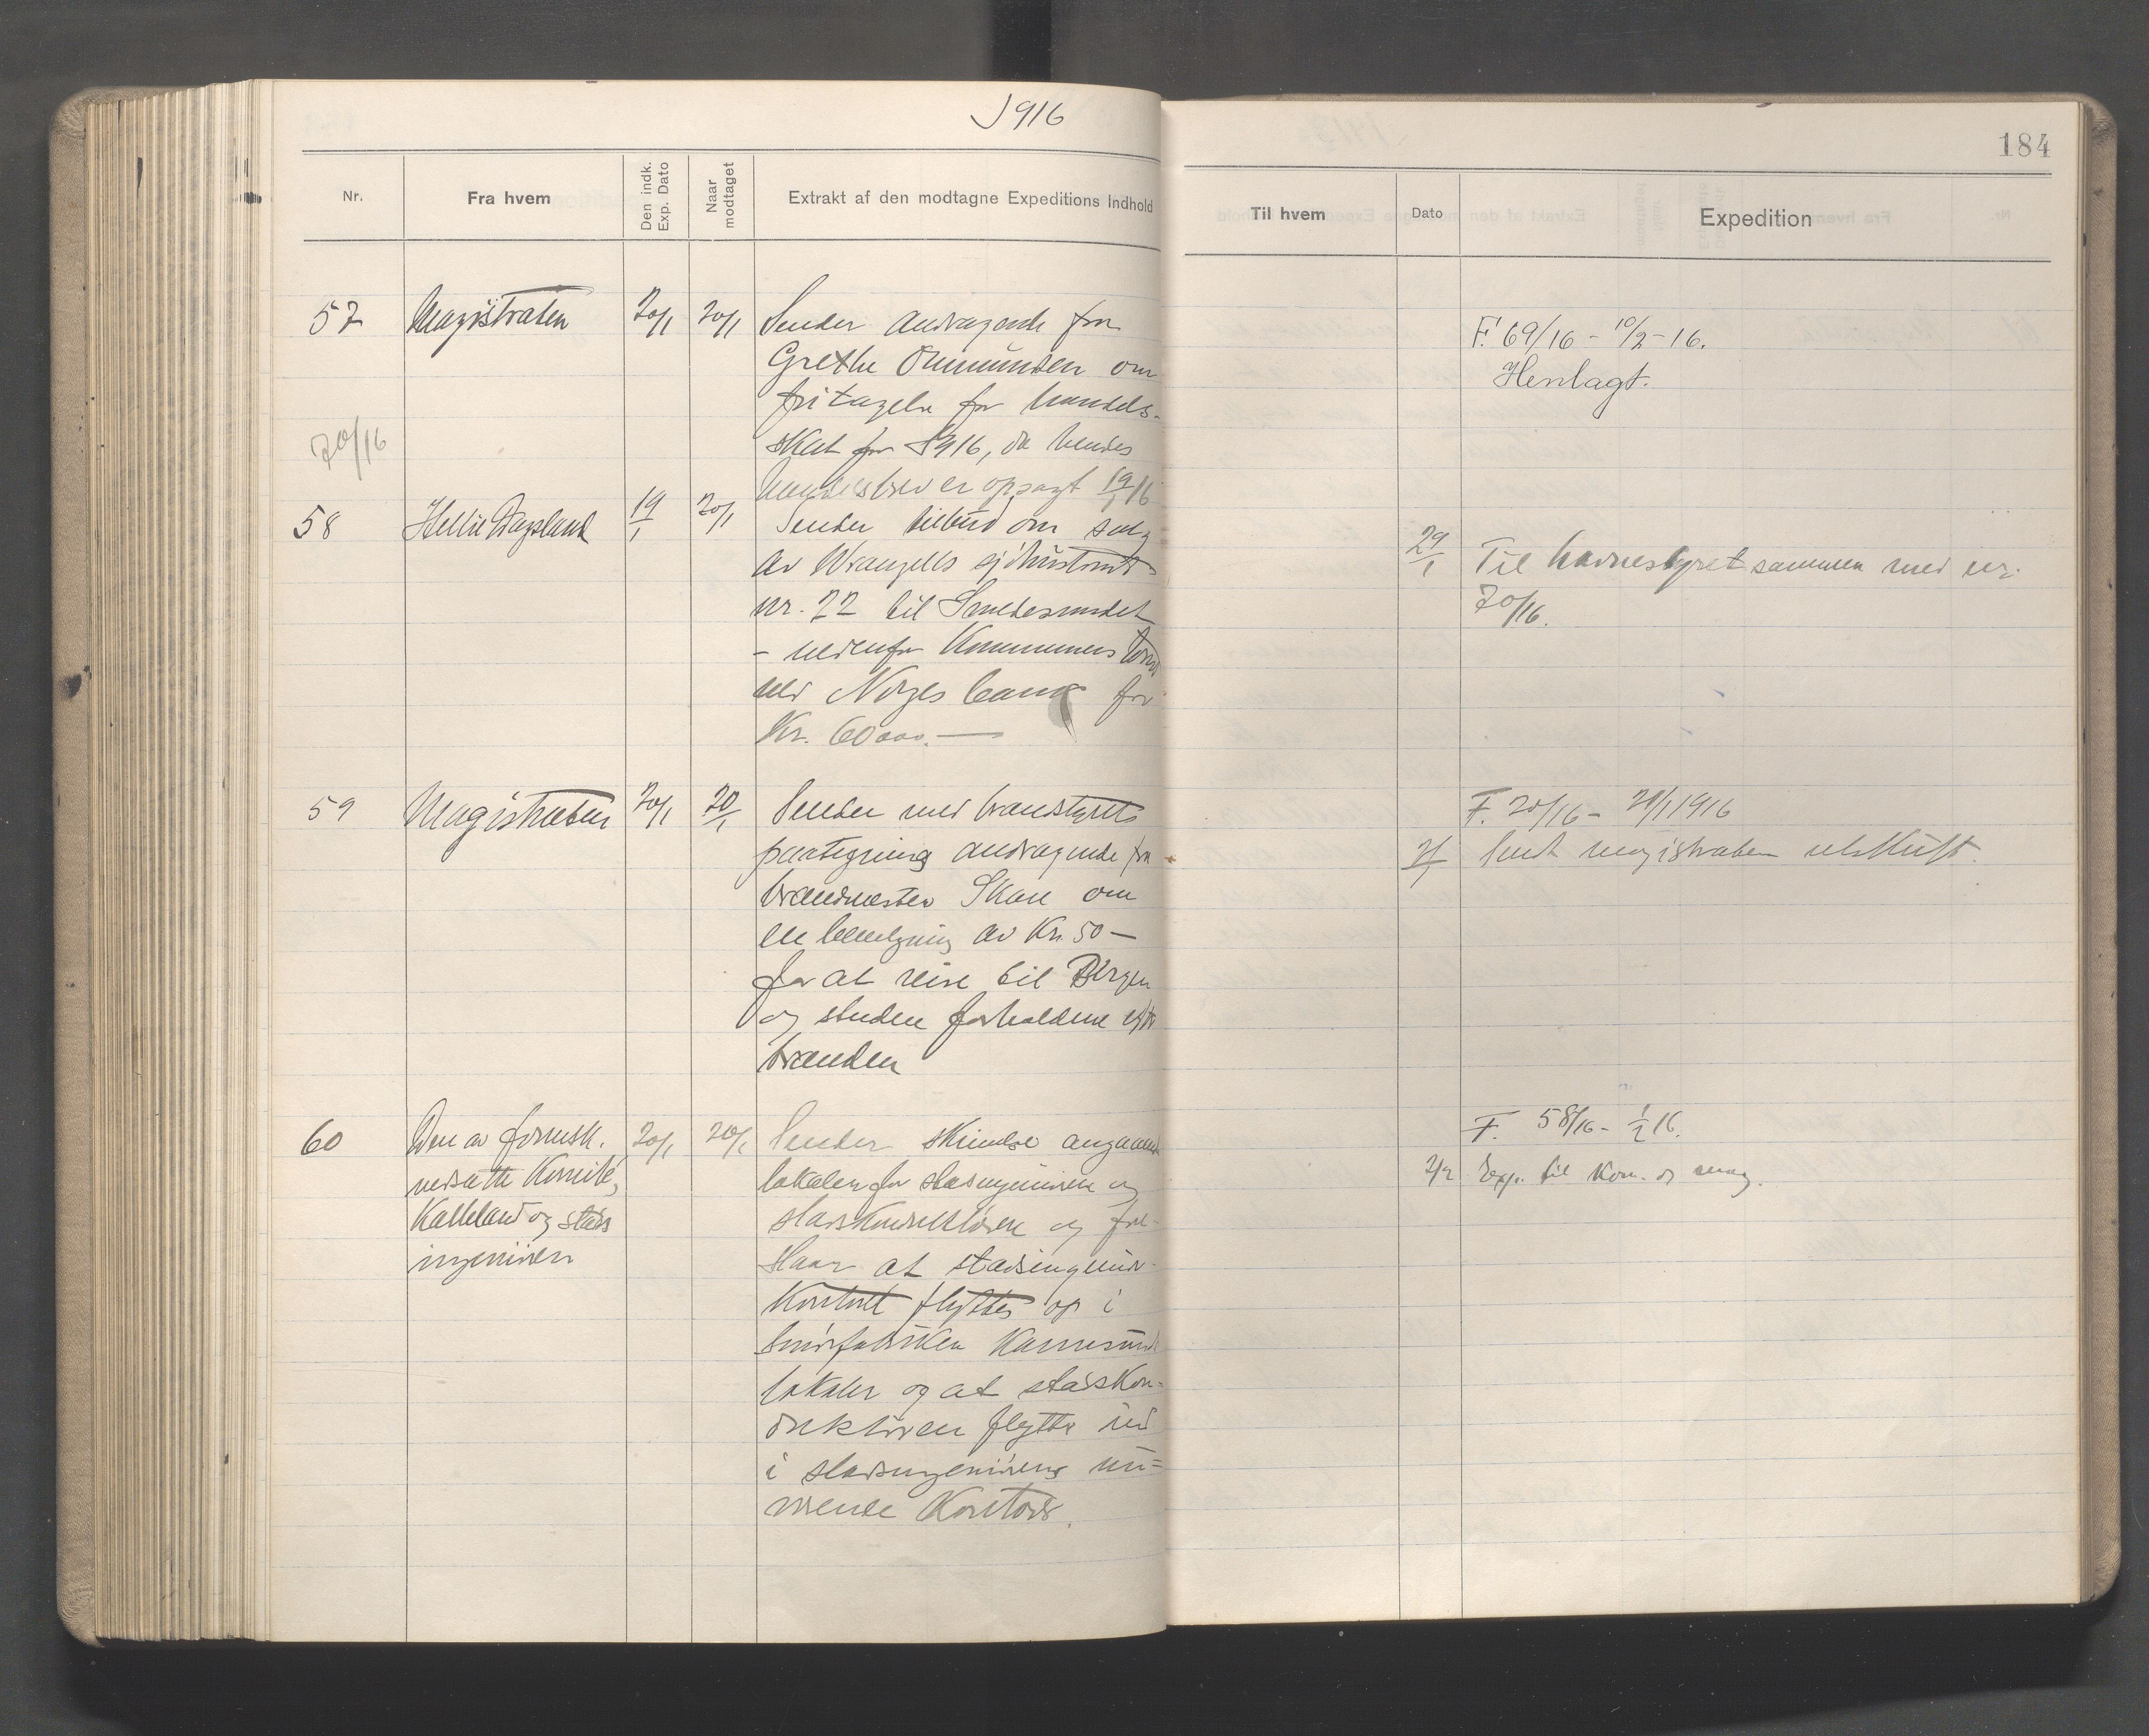 1916
184
Nr.
Fra hvem
Den indk. Exp. Dato
Naar modtaget
Extrakt af den modtagne Expeditions Indhold
Til hvem
Dato
Expedition
57
Magistraten
20/1
20/1
Sender andragende fra
Grethe Ommundsen om
fritagelse for handels-
skat for 1916, da hendes
handelsbrev er opsagt 19/1 16
F. 69/16 - 10/2-16.
Henlagt.
70/16
58
Hellie Dagsland
19/1
20/1
Sender tilbud om salg
av Wrangells sjøhustomt
nr. 22 til Smedesundet
- nedenfor Kommunens tomt
ved Norges bank for
Kr. 60 000.—
29/1
Til havnestyret sammen med nr.
70/16.
59
Magistraten
20/1
20/1
Sender med brandstyrets
paategning andragende fra
brandmester Skare om
en bevilgning av Kr. 50 —
for at reise til Bergen
og studere forholdene efter
branden
F. 20/16 - 20/1 1916
21/1
Sendt magistraten utskrift.
60
Den av formsk.
nedsatte Komité,
Kalleland og stads
ingeniøren
20/1
20/1
Sender skrivelse angaaende
lokaler for stadsingeniøren og
stadskonduktøren og fore-
slaar at stadsingeniør-
kontoret flyttes op i
Smørfabriken Karmsunds
lokaler og at stadskon-
duktøren flytter ind
i stadsingeniørens nu-
værende Kontor.
F. 58/16 - 1/2 16.
2/2
Exp. til Kom. og mag.